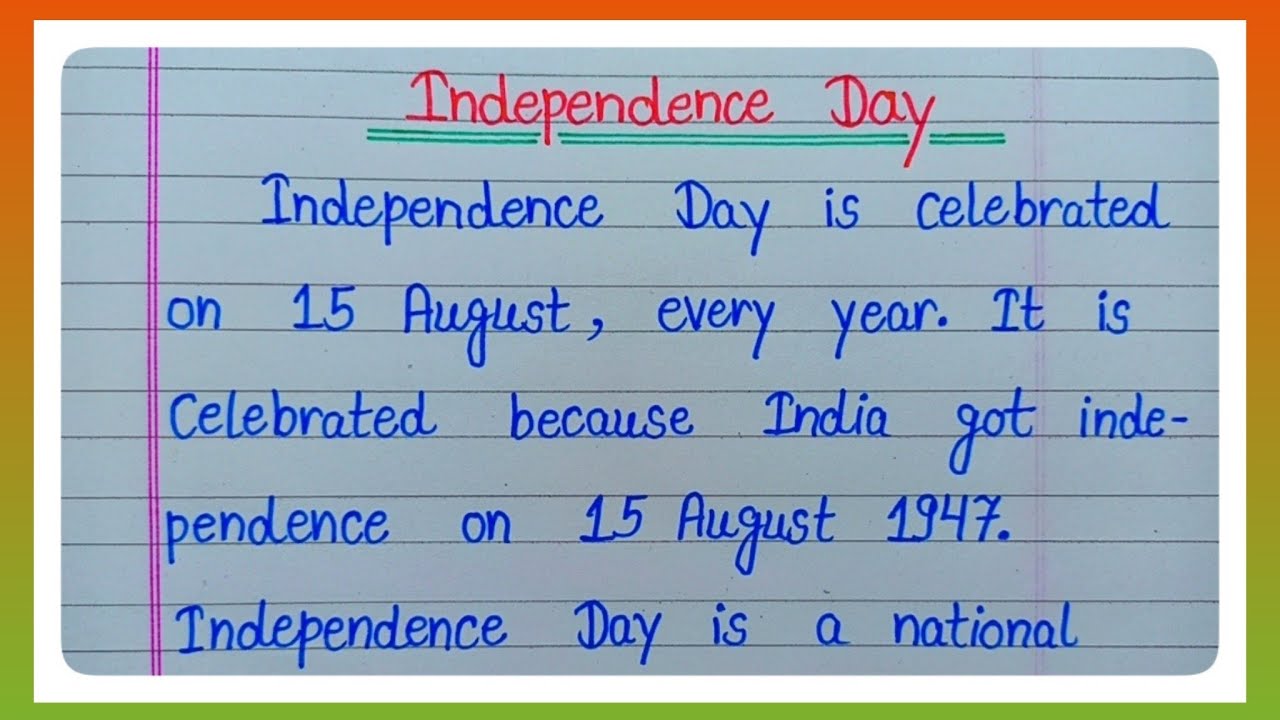 Independence Day
Independence Day is celebrated
on 15 August, every year. It is
Celebrated because India got inde-
pendence on 15 August 1947.
Independence Day is a national